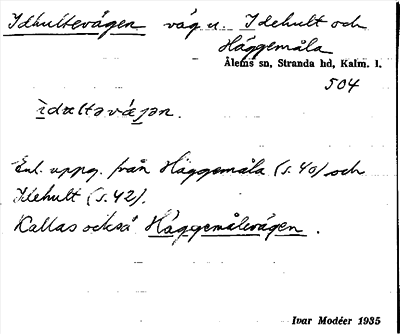 Idhultevägen väg u. Idehult och
Häggemåla
Ålems sn, Stranda hd, Kalm. l.
504
ìdɑltəvǽjən.
Enl. uppg. från Häggemåla (s. 40) och
Idehult (s. 42).
Kallas också Häggemålevägen.
Ivar Modéer 1935